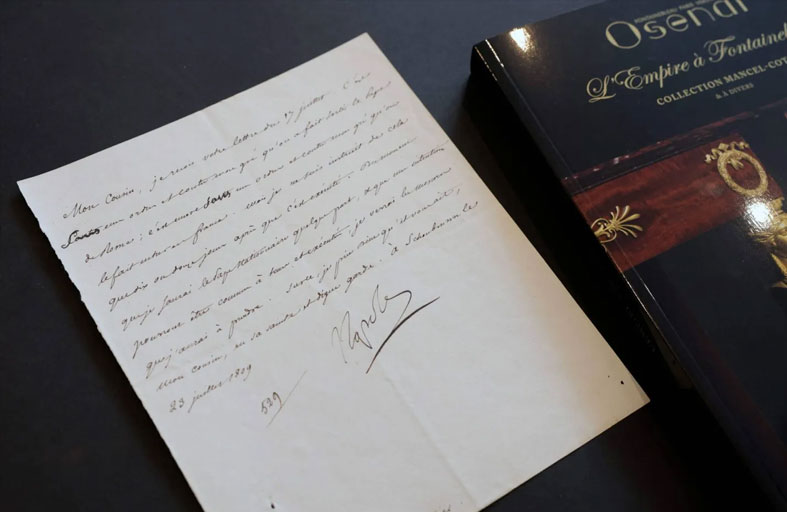 Mon Cousin, je reçois votre lettre du 17 juillet. C'est
sans mon ordre et contre mon gré qu'on a fait sortir le Pape
de Rome; c'est encore sans mon ordre et contre mon gré qu'on
le fait entrer en france. mais je ne suis instruit de cela
que dix ou douze jours après que c'est exécuté. Du moment
que je saurai le Pape stationnaire quelque part, et que vos
pourront être connus à tems et exécutés, je verrai les mesures
que j'aurai à prendre. Sur ce, je prie Dieu qu'il vous ait,
Mon cousin, en sa sainte et digne garde. à Schonbrunn le
23 juillet 1809
Napole
529
Osenat
L'Empire à Fontainebl
COLLECTION MANCEL-COT
& À DIVERS